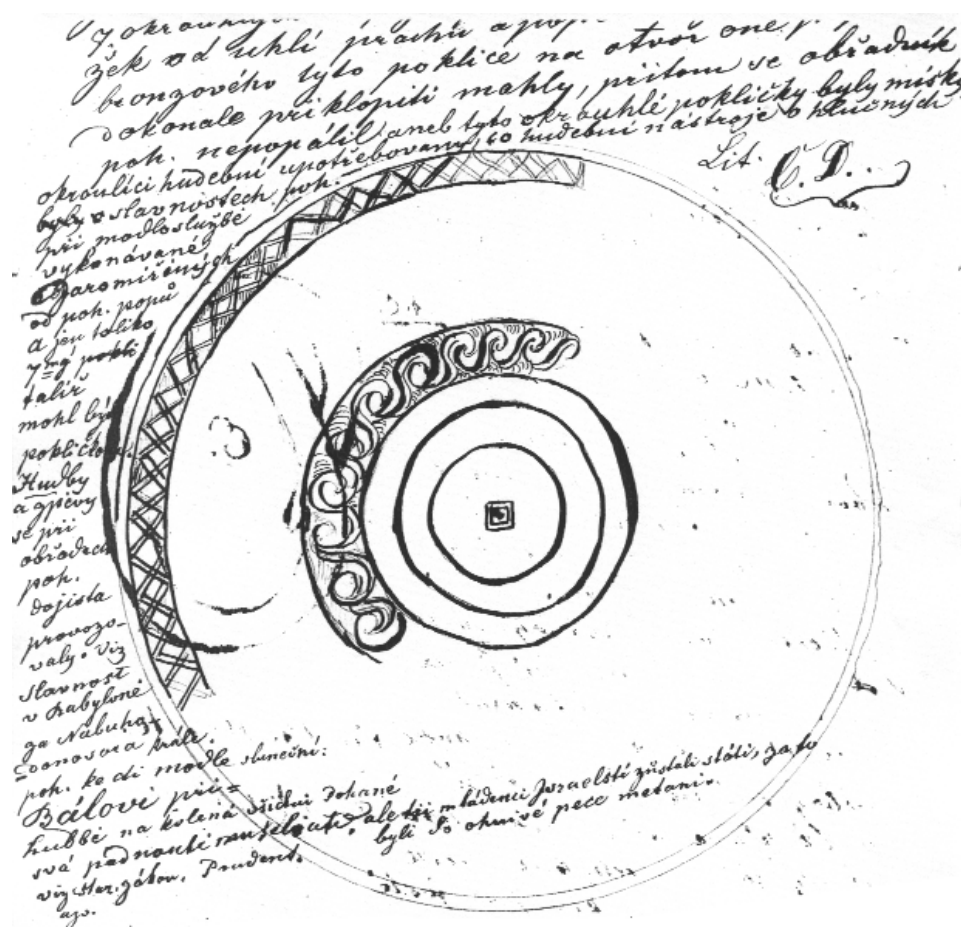 žek od uhlí prachu a
bronzového tyto poklice na otvor one
dokonale přiklopiti mohly, přitom se obřadník
poh. nepopálil, aneb tyto okrouhlé pokličky byly misky
okroulící hudební upotřebovany, co hudební nástroje o hlučných
byly slavnostech poh.
při modloslužbě
vykonávané
od poh. popů
a jen toliko
talíř
mohl být
Hudby
a zpěvy
se při
obřadech
poh.
dojista
provozo-
valy. Viz
slavnost
v Babyloně
za Nabucho-
donosora krále.
poh. ke cti modle sluneční:
Bálovi při=
hudbě na kolena všichni Pohané
svá padnouti museli, ale tři mládenci Israelští zůstali státi, za to
byli do ohnivé pece metáni.
viz star. zákon.
Lit. C. D.